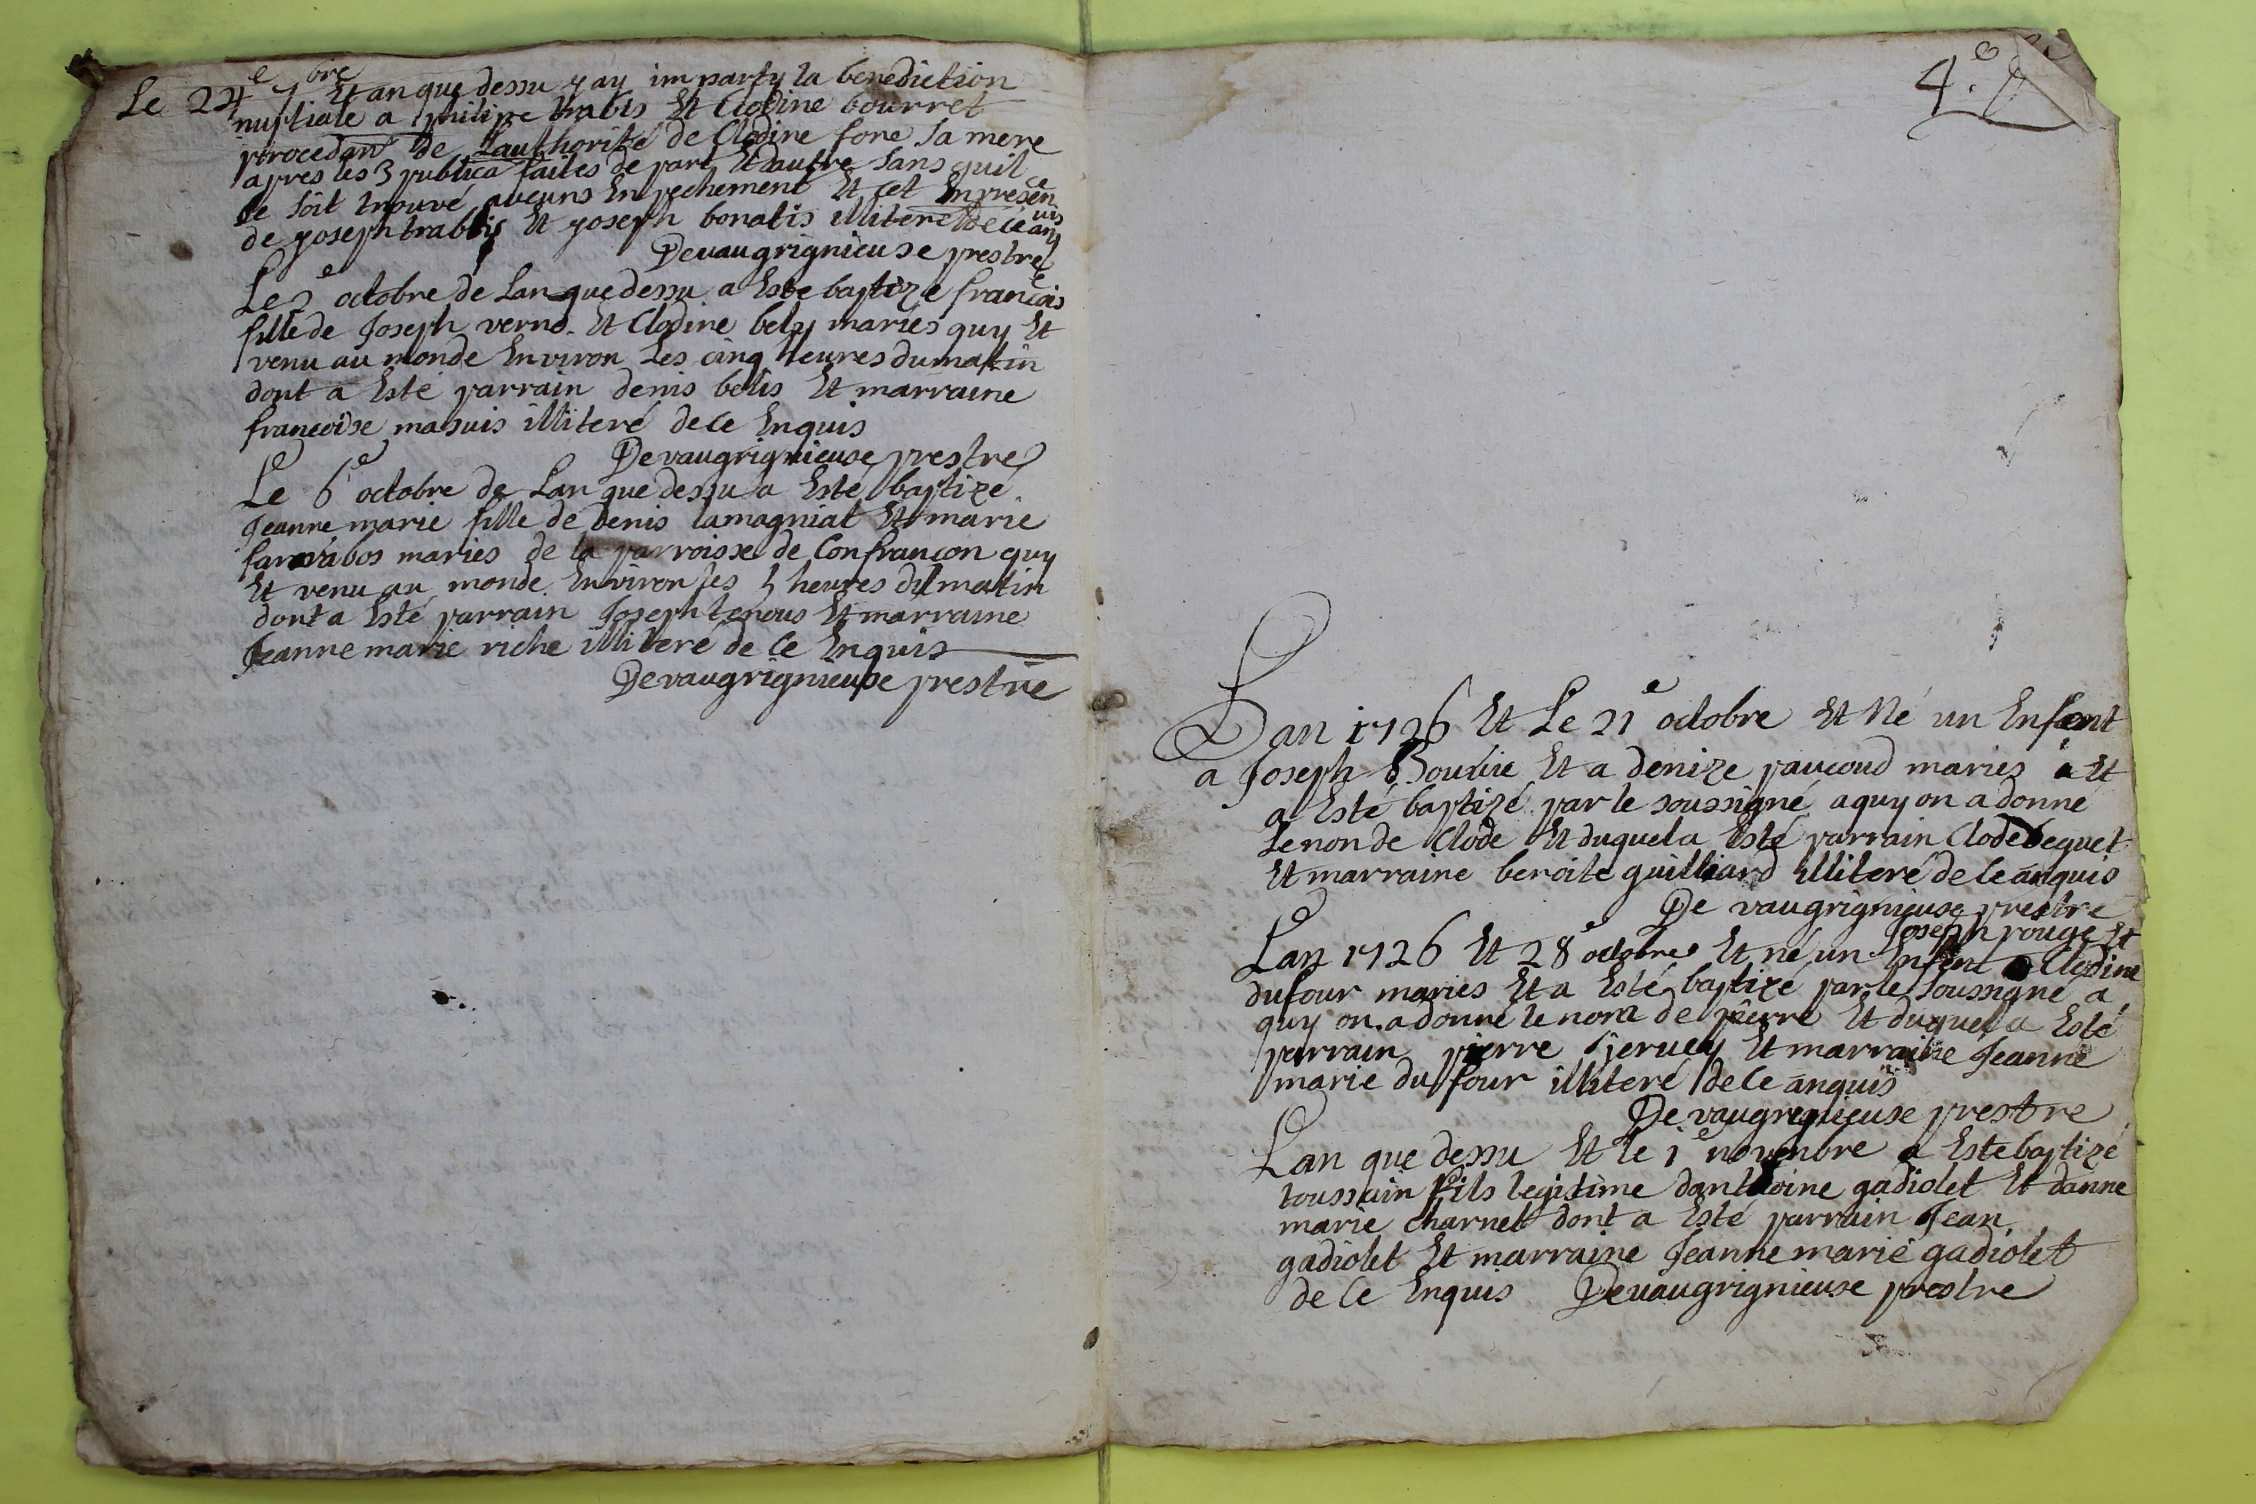 Le 24e 7bre Et an que dessu y ay imparty la benediction
nuptiale a philipe trablis Et Clodine bourret
procedan de Lauthorité de Clodine fone Sa mere
apres les 3 publica faites de part Et autre Sans quil
se soit trouvé aucuns Enpechement Et cet Enpresence
de yoseph trablis Et yoseph bonatis illiteré de ce anquis
Devaugrignieuse prestre
Le octobre de Lan que dessu a Este baptizé francois
fille de Joseph verne Et Clodine bely mariés quy Et
venu au monde Environ Les cinq heures du matin
dont a Esté parrain denis belis Et marraine
francoise masuis illiteré de ce Enquis
Devaugrignieuse prestre
Le 6e octobre de Lan que dessu a Esté baptizé
Jeanne marie fille de denis lamagniat Et marie
mariés de la parroisse de Confrancon quy
Et venu au monde Environ les 5 heures du matin
dont a Esté parrain Joseph tenous Et marraine
Jeanne marie riche illiteré de ce Enquis
Devaugrignieuse prestre
4.e
Lan 1726 Et Le 21e octobre Et Né un Enfent
a Joseph Et a denize paucoud mariés Et
a Esté baptizé par le soussigné a quy on a donné
Le non de Clode Et duquel a Esté parrain Clode beguet
Et marraine benoite guilliard illiteré de ce anquis
De vaugrignieuse prestre
Joseph rouge Et
Lan 1726 Et 28e octobre Et né un Enfent a Clodine
dufour mariés Et a Esté baptizé par le Soussigné a
quy on a donné le nom de pierre Et duquel a Esté
parrain pierre Et marraine Jeanne
marie du four illiteré de ce anquis
De vaugrignieuse prestre
Lan que dessu Et le 1e novenbre a Este baptizé
toussain Fils legitime dantoine gadiolet Et danne
marie charnet dont a Esté parrain Jean
gadiolet Et marraine Jeanne marie gadiolet
de ce Enquis Devaugrignieuse prestre